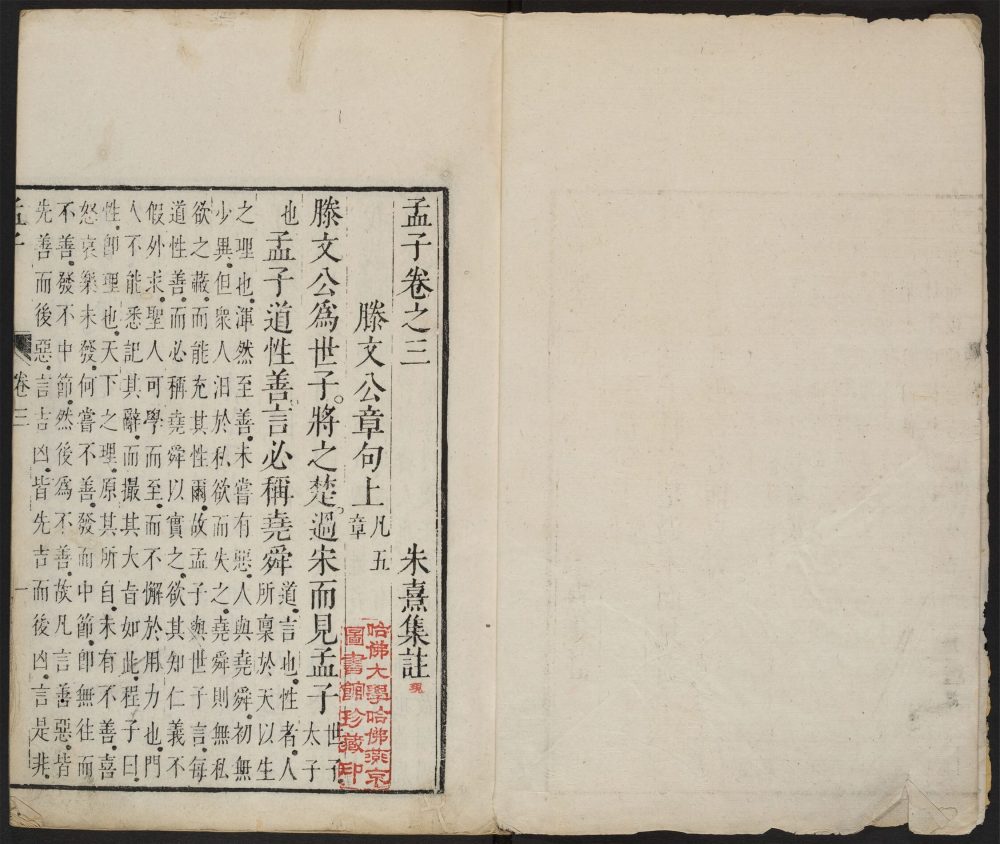 孟子卷之三　朱熹集註
滕文公章句上
凡五
章
滕文公爲世子。將之楚。過宋而見孟子
世子
太子
也
孟子道性善言必稱堯舜
道。言也。性者。人
所稟於天以生
之理也。渾然至善。未嘗有惡。人與堯舜。初無
少異。但衆人汨於私欲而失之。堯舜則無私
欲之蔽。而能充其性爾。故孟子與世子言。每
道性善。而必稱堯舜以實之。欲其知仁義不
假外求。聖人可學而至。而不懈於用力也。門
人不能悉記其辭。而撮其大旨如此。程子曰。
性。卽理也。天下之理。原其所自。未有不善。喜
怒哀樂未發。何嘗不善。發而中節。卽無往而
不善。發不中節。然後爲不善。故凡言善惡。皆
先善而後惡。言吉凶。皆先吉而後凶。言是非。
孟子　卷三　一
哈佛大學哈佛燕京
圖書館珍藏印